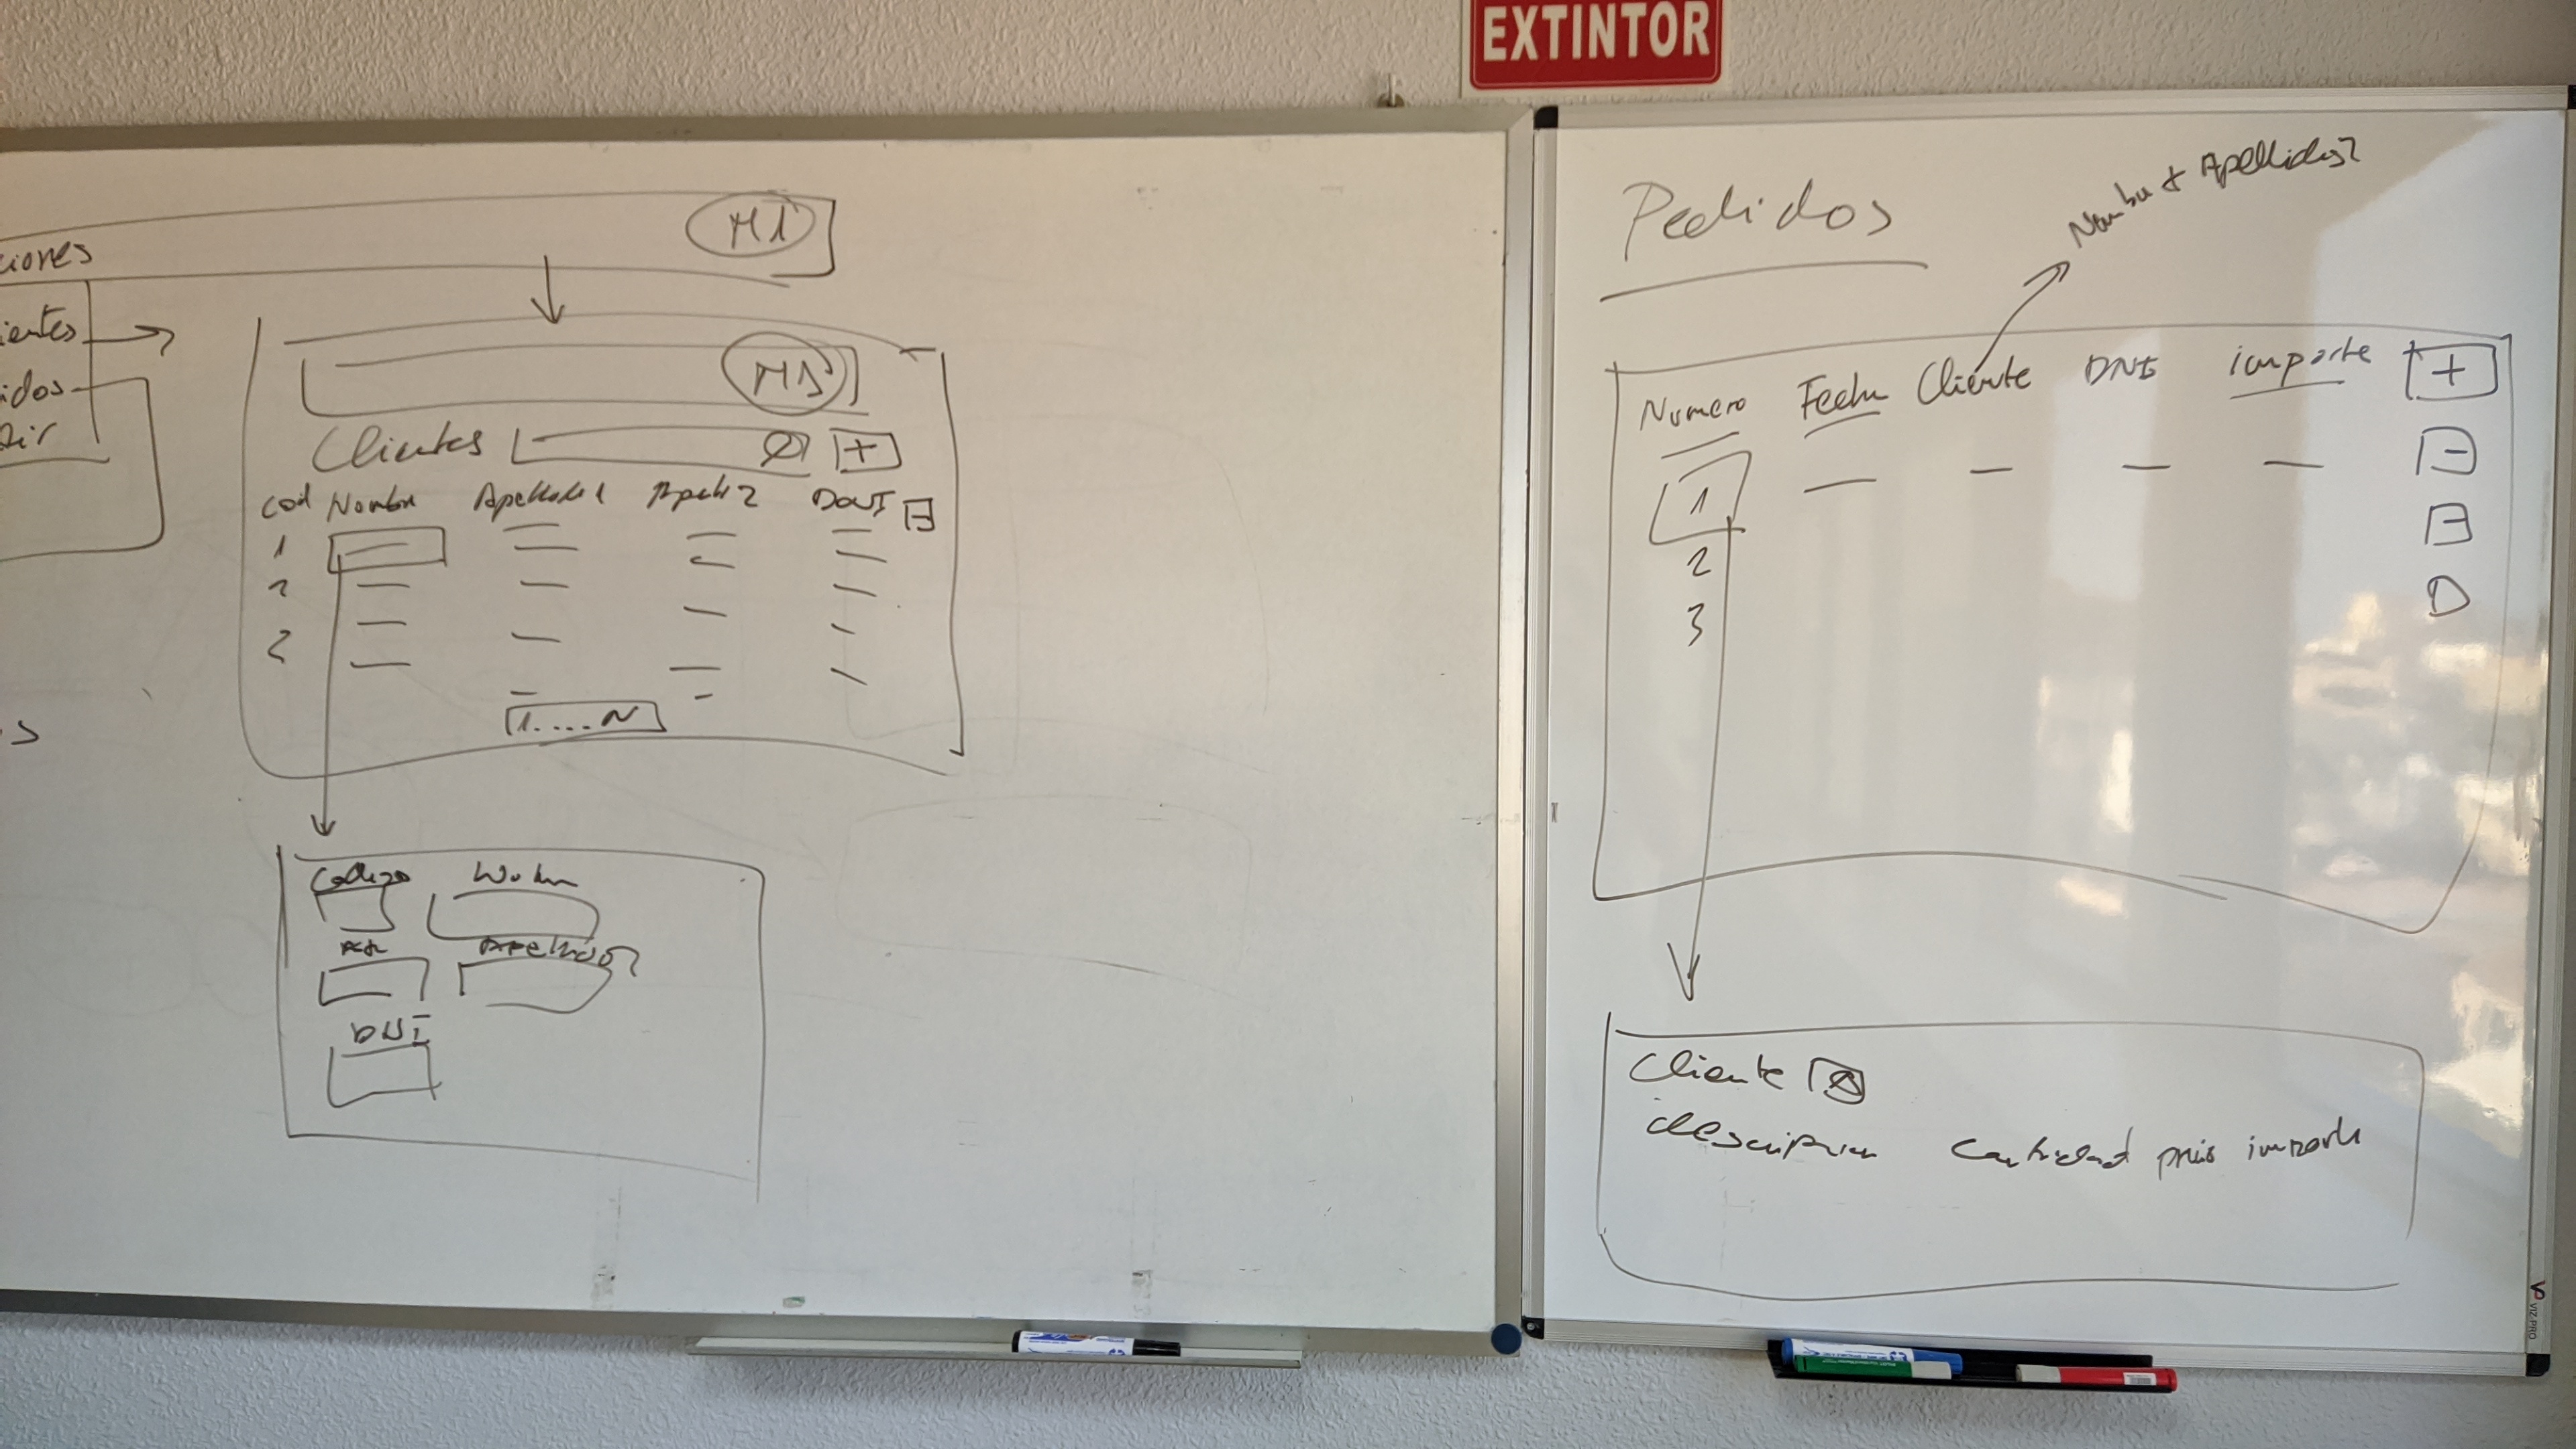 EXTINTOR
M1
ciones
ientes
idos
dir
s
M1
Clientes +
Cod Nombre Apellido1 Apell2 DNI
1
2
2
1....N
Codigo Nombre
Apellido2
DNI
Pedidos
Nombre + Apellidos?
Numero Fecha Cliente DNI importe +
1
2
3
Cliente
descripcion Cantidad precio importe
VIZ-PRO